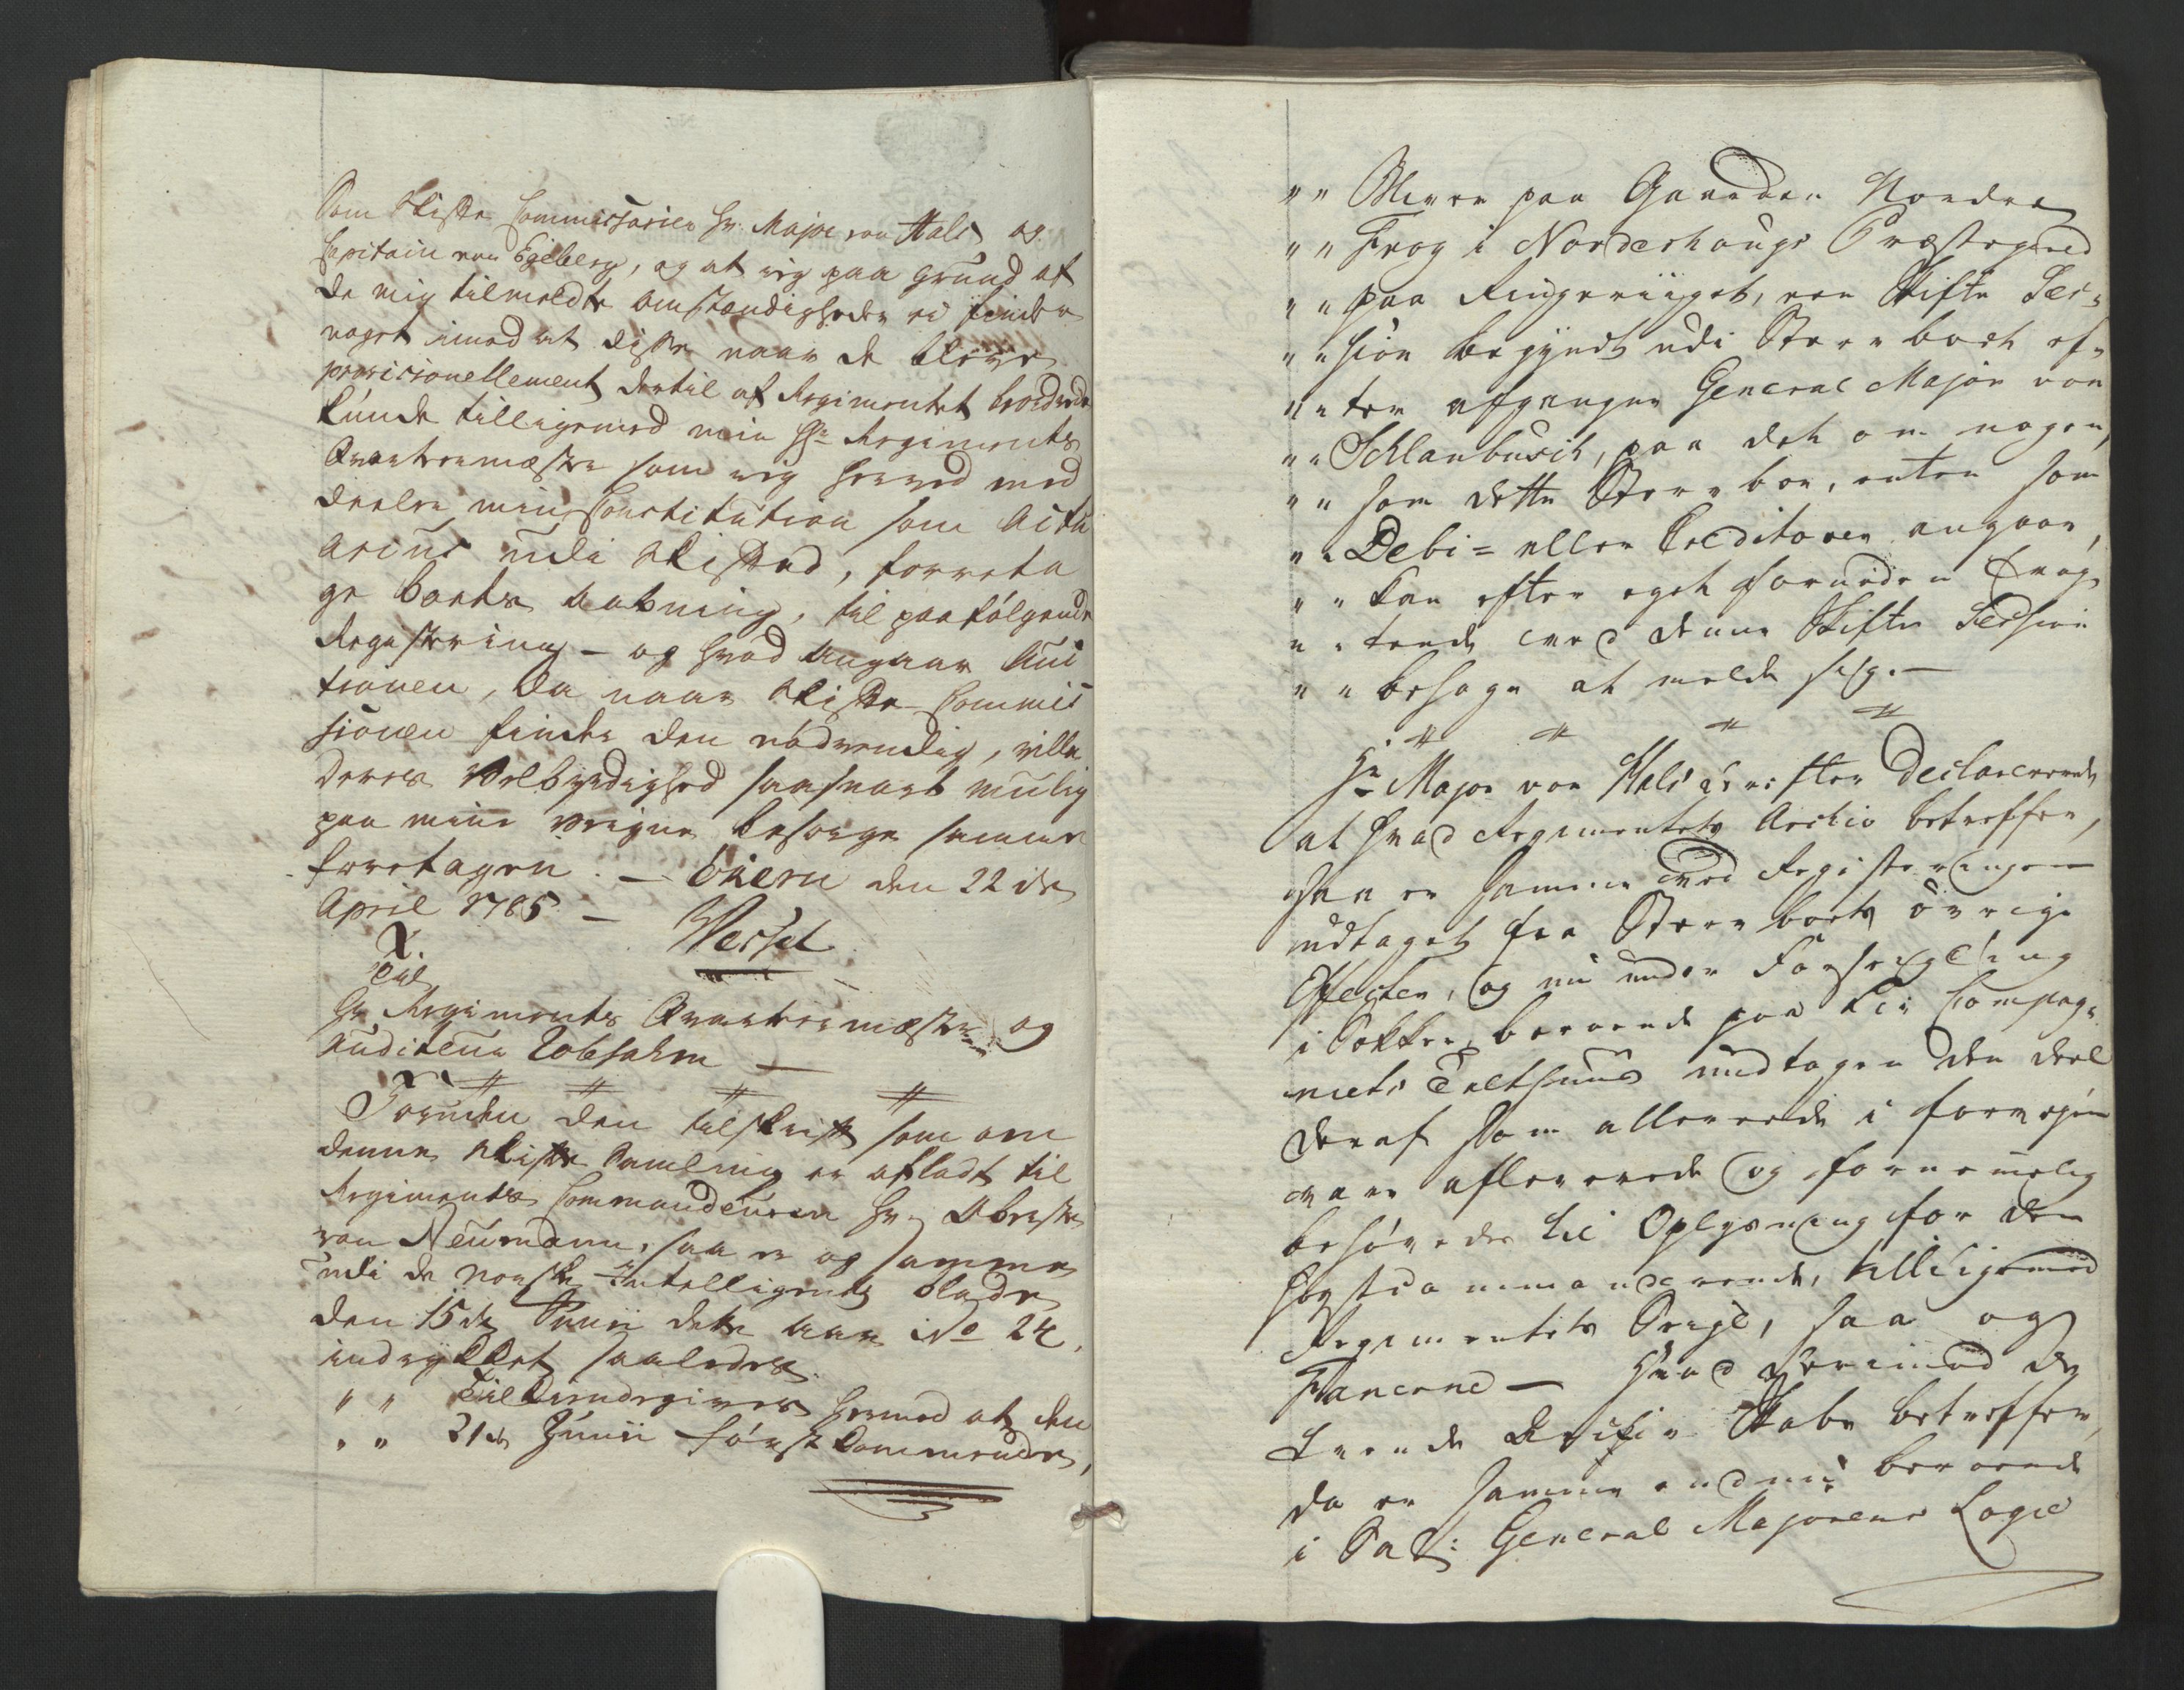 Som Skifte Commissarier Hr. Major von Hals og
Capitain von Egeberg, og at ieg paa grund af
de mig tilmeldte omstændigheder ei finder
noget imod at disse naar de bleve
provisionellement dertil af Regimentet beordrede
kunde tilligemed min Hr. Regiments
Qvarteermester som ieg herved med
deeler min Constitution som Actu
arius udi Skiftet, foreta
ge Boets aabning, til paafølgende
Registering – og hvad angaar Auc
tionen, da naar Skifte Commis
sionen finder den nødvendig, ville
Deres Velbyrdighed saasnart muelig
paa mine vegne besørge samme
foretagen. – den 22de
April 1785 –
Til
Hr. Regiments Qvarteermester og
Auditeur Lobsahm –
Foruden den tilskrift som om
denne Skifte Samling er afladt til
Regiments Commandeuren Hr. Obrist
von Neumann, saa er og samme
udi de norske Intelligents blade
den 15de Junii dette aar No 24.
indrykket saaledes.
" " Tilkiendegives hermed at den
" " 21de Junii førstkommende,
" " bliver paa Gaarden Nordre
" " Frog i Norderhougs Præstegield
" " paa Ringeriiget, een Skifte Ses-
" " sion begyndt udi Sterv boet ef-
" " ter afgangne General Major von
" " Schlanbusch, paa det om nogen,
" " som dette Stervboe, enten som
" " Debi= eller Creditorer angaar,
" " kan efter eget forgodtbefin
" " dende ved denne Skifte Session
" " behage at melde sig. –
Hr Major von Hals Declarerede
at hvad Regimentets Archiv betreffer,
saa er samme ved Registeringen
udtaget fra Stervboets øvrige
Effecter, og nu under Forseigling
i Pakker beroende paa Lif Compag-
niets Telthuus undtagen den deel
deraf som allerede i forveien
vare afleverede og fornemmelig
behøvedes til Oplysning for den
høystcommanderende, tilligemed
Regimentets Seigl, saa og
Fanerne – Hvad derimod de
tvende Archiv Skabe betreffer,
da er samme endnu beroende
i Sal: General Majorens Logie